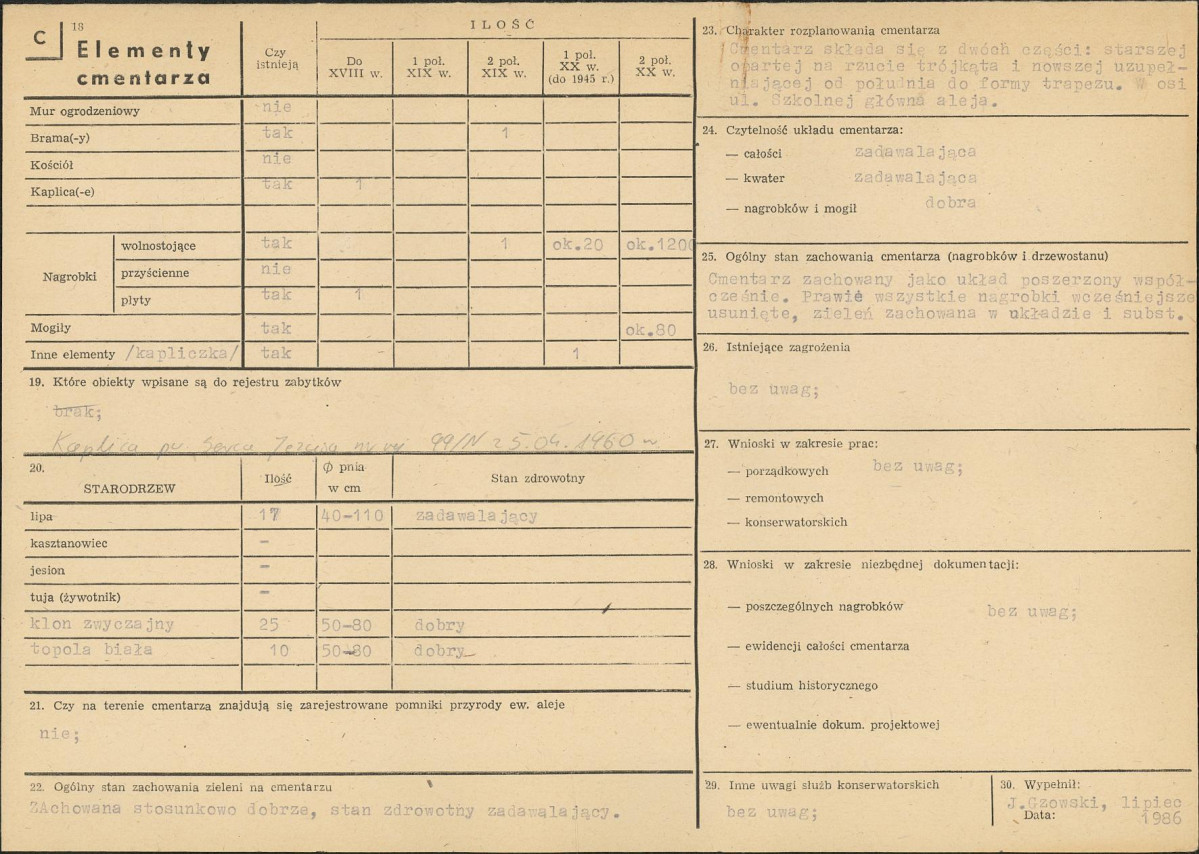 C
18
Elementy
cmentarza
Czy
istnieją
ILOŚĆ
Do
XVIII w.
1 poł.
XIX w.
2 poł.
XIX w.
1 poł.
XX w.
(do 1945 r.)
2 poł.
XX w.
Mur ogrodzeniowy nie
Brama(-y) tak 1
Kościół nie
Kaplica(-e) tak 1
Nagrobki
wolnostojące tak 1 ok.20 ok.1200
przyścienne nie
płyty tak 1
Mogiły tak ok.80
Inne elementy /kapliczka/ tak 1
19. Które obiekty wpisane są do rejestru zabytków
brak;
Kaplica pw Serca Jezusa nr rej. 99/N z 5.04.1960
20.
STARODRZEW
Ilość
Ø pnia
w cm
Stan zdrowotny
lipa 17 40-110 zadawalający
kasztanowiec -
jesion -
tuja (żywotnik) -
klon zwyczajny 25 50-80 dobry
topola biała 10 50-80 dobry
21. Czy na terenie cmentarza znajdują się zarejestrowane pomniki przyrody ew. aleje
nie;
22. Ogólny stan zachowania zieleni na cmentarzu
ZAchowana stosunkowo dobrze, stan zdrowotny zadawalający.
23. Charakter rozplanowania cmentarza
Cmentarz składa się z dwóch części: starszej
opartej na rzucie trójkąta i nowszej uzupeł-
niającej od południa do formy trapezu. W osi
ul. Szkolnej główna aleja.
24. Czytelność układu cmentarza:
— całości zadawalająca
— kwater zadawalająca
— nagrobków i mogił dobra
25. Ogólny stan zachowania cmentarza (nagrobków i drzewostanu)
Cmentarz zachowany jako układ poszerzony współ-
cześnie. Prawie wszystkie nagrobki wcześniejsze
usunięte, zieleń zachowana w układzie i subst.
26. Istniejące zagrożenia
bez uwag;
27. Wnioski w zakresie prac:
— porządkowych bez uwag;
— remontowych
— konserwatorskich
28. Wnioski w zakresie niezbędnej dokumentacji:
— poszczególnych nagrobków bez uwag;
— ewidencji całości cmentarza
— studium historycznego
— ewentualnie dokum. projektowej
29. Inne uwagi służb konserwatorskich
bez uwag;
30. Wypełnił:
J.Gzowski, lipiec
Data: 1986